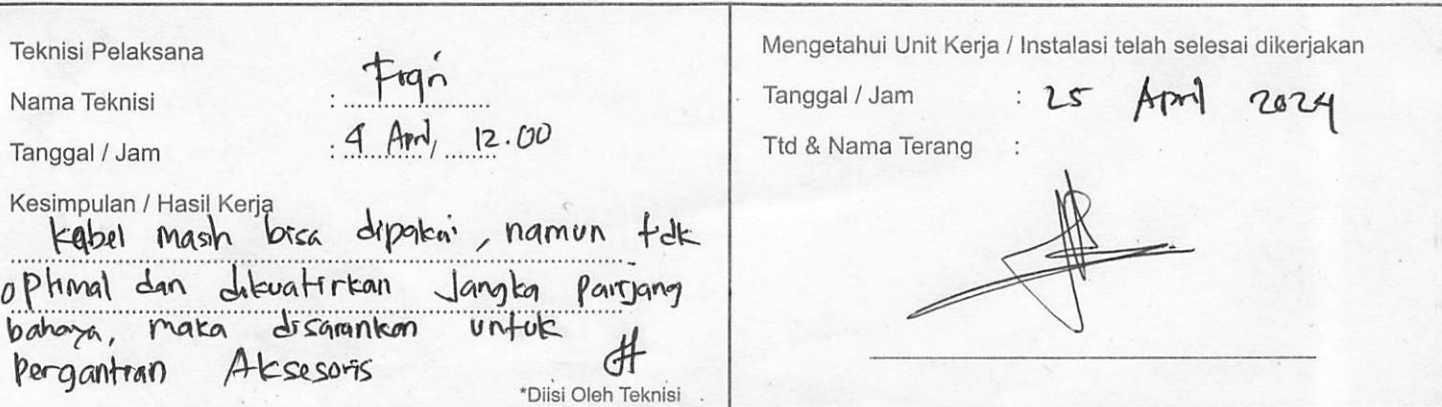 Teknisi Pelaksana
Nama Teknisi : Fiqri
Tanggal / Jam : 4 April, 12.00
Kesimpulan / Hasil Kerja
kabel masih bisa dipakai, namun tdk
optimal dan dikuatirkan Jangka Panjang
bahaya, maka disarankan untuk
Pergantian Aksesoris
*Diisi Oleh Teknisi
Mengetahui Unit Kerja / Instalasi telah selesai dikerjakan
Tanggal / Jam : 25 April 2024
Ttd & Nama Terang :